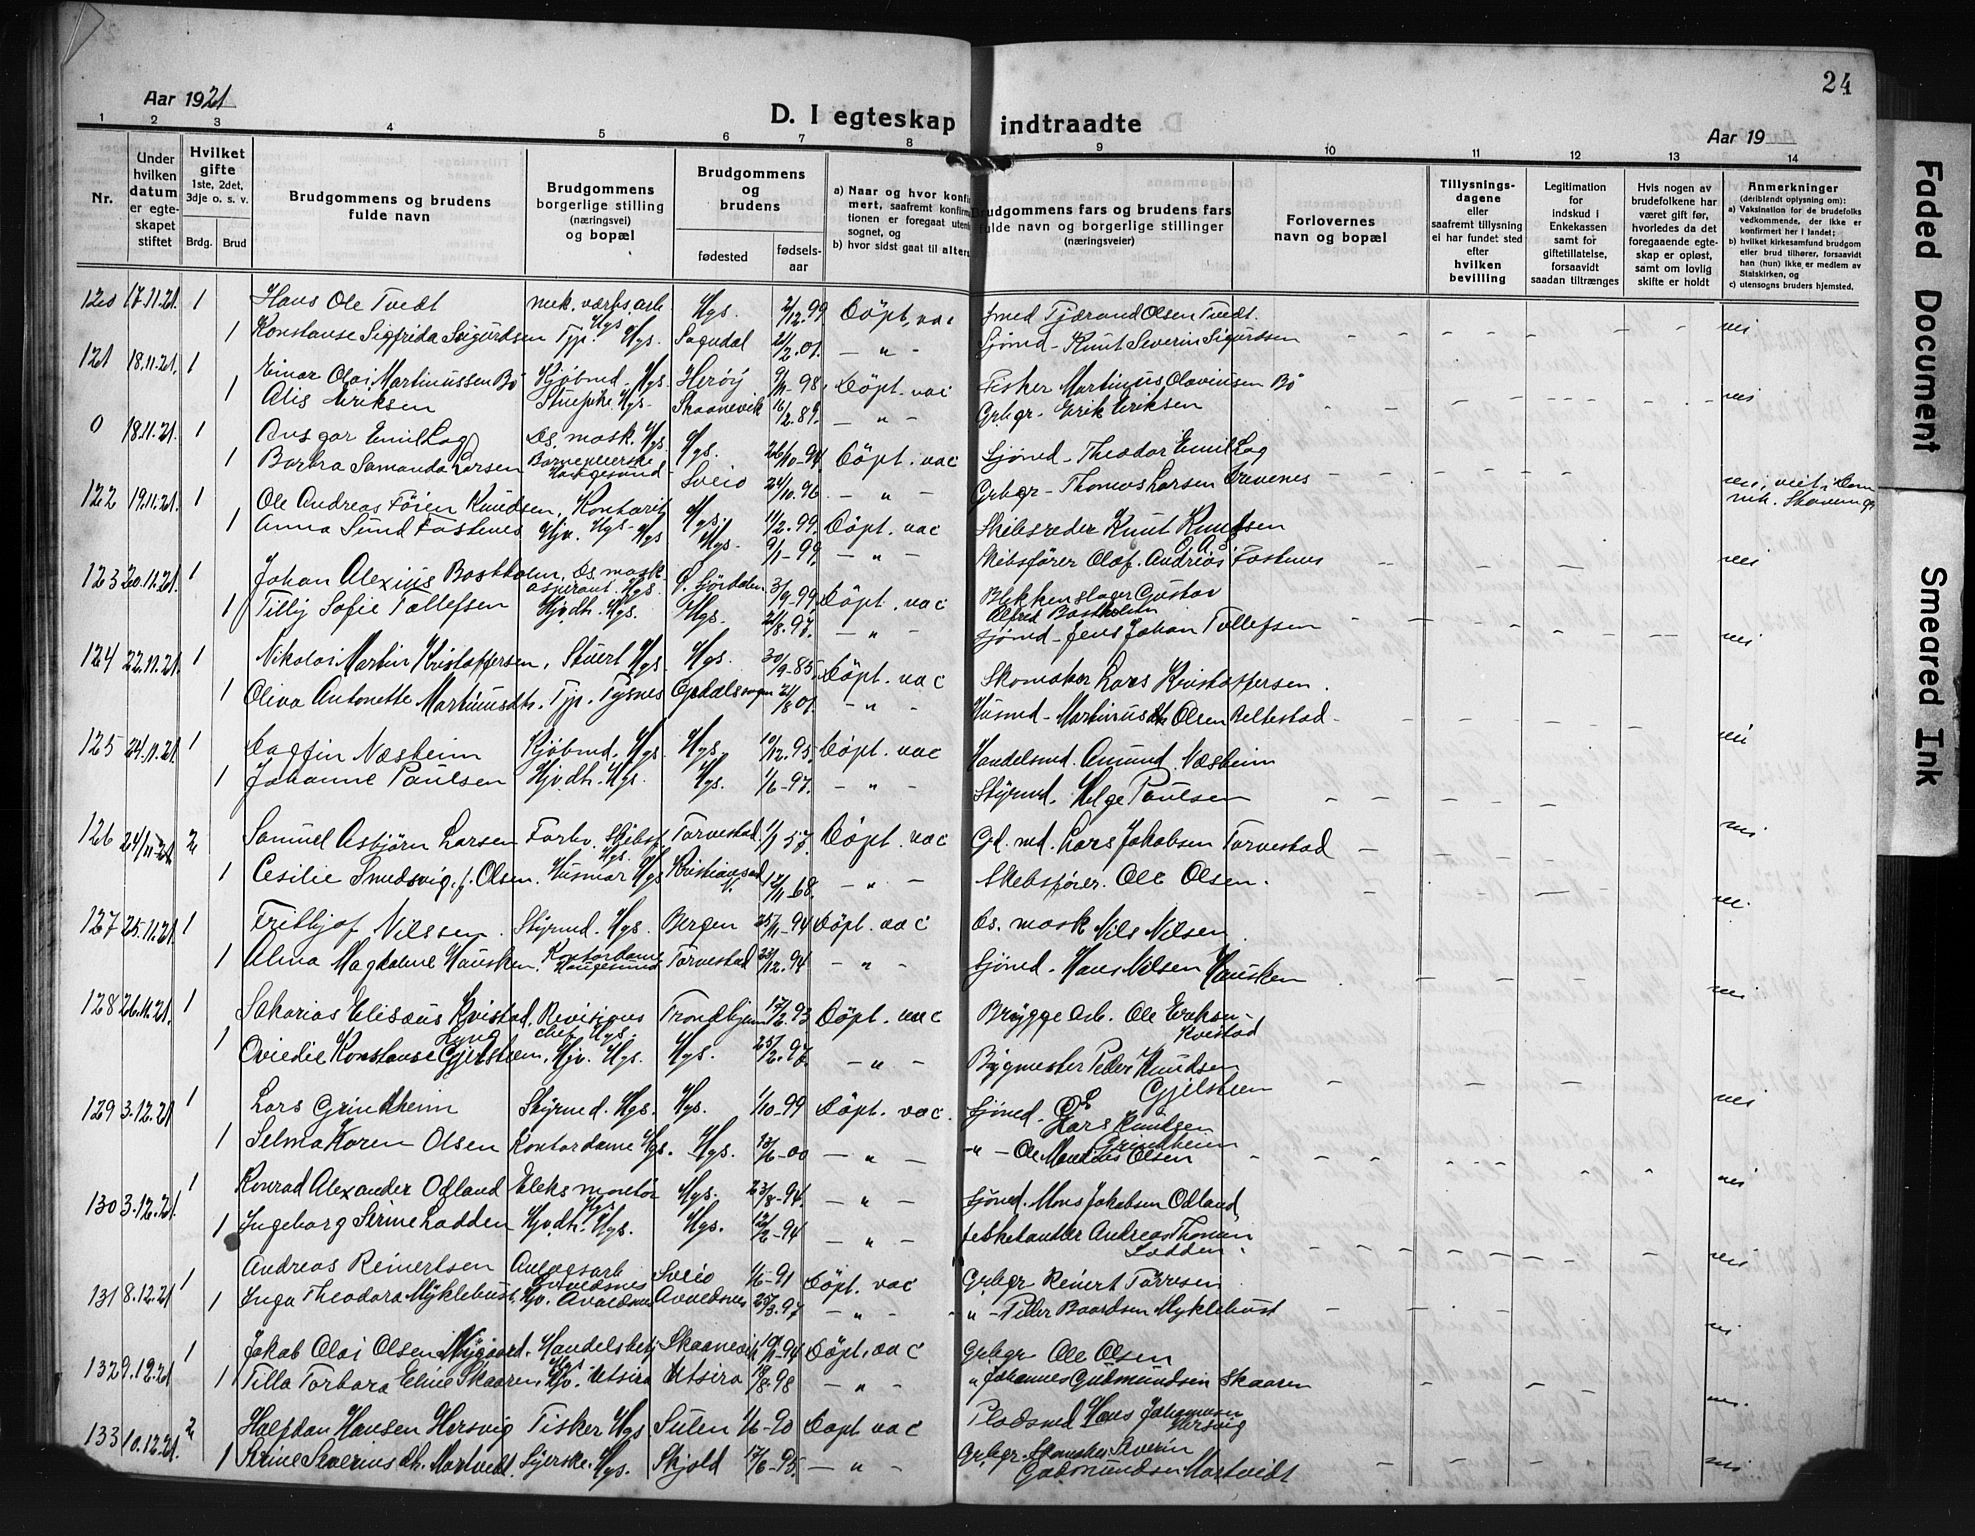 24
Aar 1921
D. I egteskap indtraadte
Aar 19
1 2 3 4 5 6 7 8 9 10 11 12 13 14
Nr.
Under hvilken datum er egteskapet stiftet
Hvilket gifte
1ste, 2det, 3dje o. s. v.
Brdg. Brud
Brudgommens og brudens fulde navn
Brudgommens borgerlige stilling (næringsvei) og bopæl
Brudgommens og brudens
fødested
fødselsaar
a) Naar og hvor konfir
mert, saafremt konfirma
tionen er foregaat utenfo
sognet, og
b) hvor sidst gaat til alters
Brudgommens fars og brudens fars fulde navn og borgerlige stillinger (næringsveier)
Forlovernes navn og bopæl
Tillysningsdagene eller saafremt tillysning ei har fundet sted efter hvilken bevilling
Legitimation for indskud i Enkekassen samt for giftetillatelse, forsaavidt saadan tiltrænges
Hvis nogen av brudefolkene har været gift før, hvorledes da det foregaaende egteskap er opløst, samt om lovlig skifte er holdt
Anmerkninger
(deriblandt oplysning om):
a) Vaksination for de brudefolks vedkommende, der ikke er konfirmert her i landet;
b) hvilket kirkesamfund brudgom eller brud tilhører, forsaavidt han (hun) ikke er medlem av Statskirken, og
c) utensogns bruders hjemsted.
120 17.11.21. 1 Hans Ole Tvedt mek. værks arb Hgs. Hgs. 2/12.99 Døpt, vac Smed Tjærand Olsen Tvedt.
1 Konstanse Sigfrida Sigurdsen Typ. Hgs. Sogndal 2/2.01. — " — Sjømd - Knut Severin Sigurdsen nei
121 18.11.21. 1 Einar Olai Martinussen Bø Kjøbmd. Hgs. Herøy 9/11-98 Døpt. vac Fisker Martinus Olavinsen Bø
1 Alis Eriksen Hgs. Skaanevik 16/2.89. — " — Grbgr. Erik Eriksen nei
0 18.11.21. 1 Ansgar Emil Log Ds. mask. Hgs Hgs. 26/10-94 Døpt. vac Sjømd - Theodor Emil Log
1 Barbra Samanda Larsen Barnepleierske Haugesund Sveio 24/10.96 — " — Grbgr - Thomas Larsen Trevenes
122 19.11.21. 1 Ole Andreas Føien Knudsen, Hgs. Hgs. 11/2.99. Døpt. vac Skibsreder Knut Knudsen
1 Anna Sund Fosthnes Hjv. Hgs Hgs. 9/1-99. — " — Skibsfører Olaf Andreas nei
123 20.11.21. 1 Johan Alexius Bastholm, Ds. mask aspirant. Hgs. 3/9-99 Døpt. vac Blikkenslager Gustav Alfred Bastholm
1 Tilly Sofie Tollefsen Hjvdtr. Hgs. Hgs. 21/8.97. — " — Sjømd - Jens Johan Tollefsen nei
124 22.11.21. 1 Nikolai Martin Kristoffersen, Stuert Hgs. Hgs. 30/9-85 Døpt. vac Skomaker Lars Kristoffersen.
1 Oliva Antonette Martinusdtr. Typ. Tysnes Opdalssogn 21/8 01. — " — Husmd - Martinus Olsen Beltestad nei
125 24.11.21. 1 Dagfin Næsheim Kjøbmd. Hgs. Hgs. 10/12.95 Døpt. vac Handelsmd. Amund Næsheim
1 Johanne Paulsen Hjvdtr. Hgs. Hgs. 1/6-97. — " — Styrmd. Helge Paulsen nei
126 24/11-21 2 Samuel Asbjørn Larsen Forhv. Skibsf. Hgs. Torvestad. 1/1 57. Døpt. vac Gd. md. Lars Jakobsen Torvestad
1 Cesilie Smedsvig. f. Olsen. Husmor Hgs Kristiansund 12/11 68. — " — Skibsfører. Ole Olsen.
127 25.11.21. 1 Fritbjof Nilssen. Styrmd. Hgs. Bergen 25/11-94 Døpt. vac Ds. mask Nils Nilsen
1 Alma Magdalene Hausken. Kontordame Haugesund Torvestad 23/12.94 — " — Sjømd. Hans Nilsen Hausken nei
128 26.11.21. 1 Sakarias Elisæus Kvistad, Revisions chef Hgs. Trondhjem 17/12.93 Døpt. vac Brygge arb. Ole Eriksen Kvistad
1 Oviedie Konstanse Lund Gjelsteen, Hjv. Hgs. Hgs. 25/2.97. — " — Bygmester Peder Knudsen Gjelsteen
129 3.12.21. 1 Lars Grindheim Styrmd. Hgs. Hgs. 1/10-99 Døpt. vac. Sjømd. Lars Knutsen Grindheim nei
1 Selma Karen Olsen Kontordame Hgs. Hgs. 13/6-00 — " — " - Ole Martines Olsen
130 3.12.21. 1 Konrad Alexander Odland Eleks montør Hgs. Hgs. 23/8-94. — " — Sjømd. Mons Jakobsen Odland nei
1 Ingeborg Serine Lodden Hjvdtr. Hgs. Hgs. 12/2-94 — " — Andreas Thomsen Lodden
131 8.12.21 1 Andreas Reinertsen Anlegsarb Avaldsnes Sveio 1/6-91 Døpt. vac Grbgr Reinert Torresen nei
1 Inga Theodora Myklebust. Hjv. Avaldsnes Avaldsnes 25/3.97 — " — " - Peder Baardsen Myklebust
132 9.12.21 1 Jakob Olai Olsen Nygaard. Handelsbetj Hgs. Skaanevik 19/11-94 Døpt. vac Grbgr Ole Olsen
1 Tilla Torbora Eline Skaaren, Hjv. Utsira Utsira 19/8.98 — " — " Johannes Gudmundsen Skaaren
133 10.12.21. 2 Halfdan Hansen Hersvig Fisker Hgs Sulen 1/6-90 Døpt vac Pladsmd Hans Johannesen Hersvig
1 Serine Severinsdtr. Mortvedt. Syerske. Hgs. Skjold 17/6-95. — " — Grbgr. Severin Gudmundsen Mortveidt nei
Faded Document
Smeared Ink